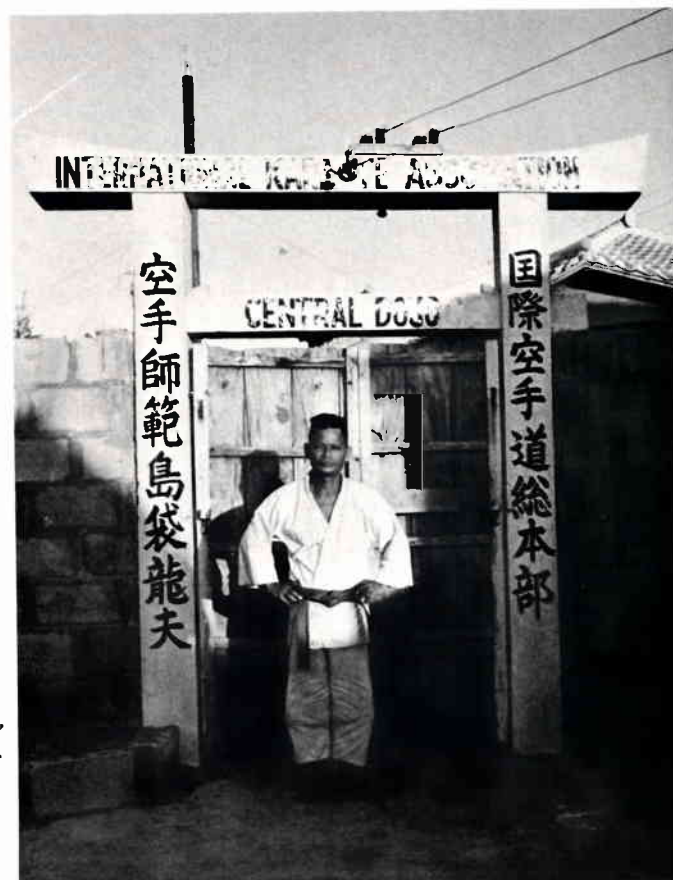 INTERNATIONAL KARATE ASSOCIATION
CENTRAL DOJO
国際空手道総本部
空手師範島袋龍夫